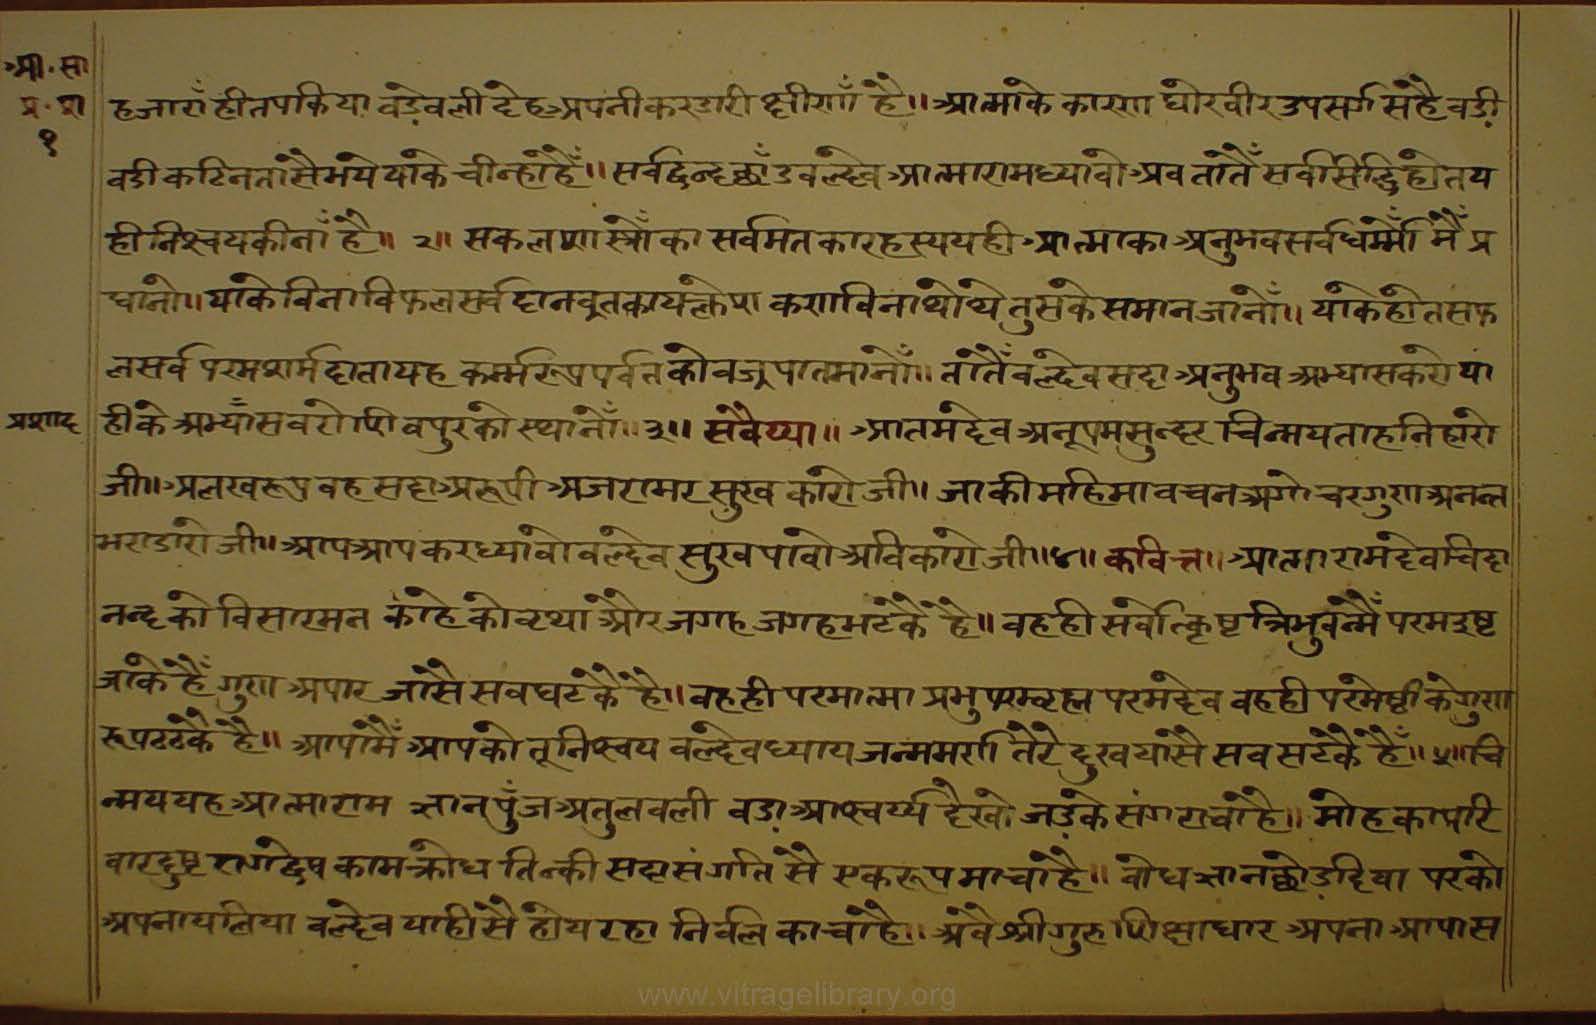 आ. सा
प्र. श
१
हजाराँ ही तप किया वडे वली देह अपनी कर डारी क्षीणाँ है॥ आत्मा के कारण घोर वीर उपसर्ग सहै वडी
वडी कठिनता सै भये याके चीन्हां हैँ॥ सर्व द्वन्द छाँड वल्देव आत्माराम ध्यावो अव तातैँ सर्व सिद्धि होत य
ही निश्चय कीनाँ है॥ २॥ सकल शास्त्रोँ का सर्व मत का रहस्य यही आत्मा का अनुभव सर्व धर्म्मोँ मैँ प्र
धानो॥ याके विना विफल सर्व दान वृत काय क्लेश कण विना थोथे तुस के समान जानोँ॥ याके होत सफ
ल सर्व परम शर्म दाता यह कर्म्म रूप पर्वत को वज्रपात मानोँ॥ तातैँ वल्देव सदा अनुभव अभ्यास करो या
प्रशाद
ही के अभ्याँस वरो शिवपुर को स्थानोँ॥ ३॥ सवैय्या॥ आतम देव अनूपम सुन्दर चिन्मय ताह निहारो
जी॥ अलख रूप वह सदा अरूपी अजरामर सुख कारो जी॥ जाकी महिमा वचन अगोचर गुण अनन्त
भण्डारो जी॥ आप आप कर ध्यावो वल्देव सुख पावो अविकारो जी॥ ४॥ कवित्त॥ आत्माराम देव चिदा
नन्द को विसार मन काहे को वृथा और जगह जगह भटकै है॥ वह ही सर्वोत्कृष्ट त्रिभुवन्मैँ परम इष्ट
जाके हैँ गुण अपार जासै सव घटकै है॥ वह ही परमात्मा प्रभु परम्ब्रह्म परम देव वह ही परमेष्टी के गुण
रूप टटकै है॥ आपा मैँ आप को तू निश्चय वल्देव ध्याय जन्म मर्ण तेरे दुख यासै सव सटकै हैँ॥ ५॥ चि
न्मय यह आत्माराम ज्ञान पुँज अतुल वली वडा आश्चर्य्य देखो जड के संग राचा है॥ मोह का परि
वार दुष्ट राग द्वेष काम क्रोध तिन्की सदा संगति सै एक रूप माचा है॥ वोध ज्ञान छोड दिया पर को
अपनाय लिया वल्देव याही सै होय रहा निर्वल काचा है॥ अवै श्री गुरु शिक्षा धार अपना आपा स
www.vitragelibrary.org